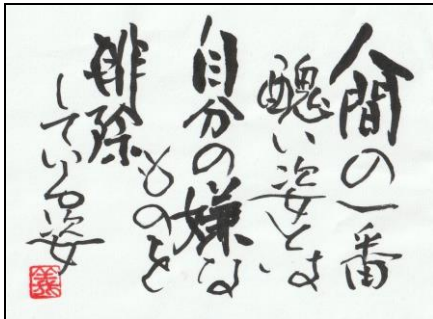 人間の一番
醜い姿とは
自分の嫌な
ものを
排除
している姿